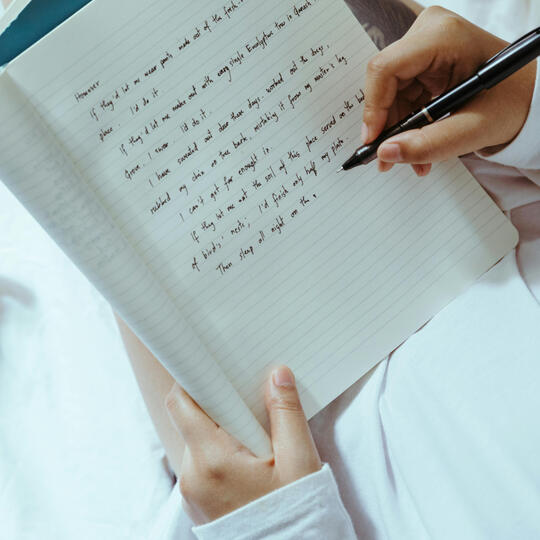 However
If they'd let me wear pants made out of the fish in
place I'd do it.
If they'd let me make out with every single Eucalyptus tree in
Grove, I swear I'd do it.
I have sweated out dear these days, worked out the days,
rubbed my chin on tree bark, mistaking it from my master's leg.
I can't get far enough in.
If they let me eat the soil of this place served on the bed
of birds' nests, I'd finish only half my plate.
Then sleep all night on the